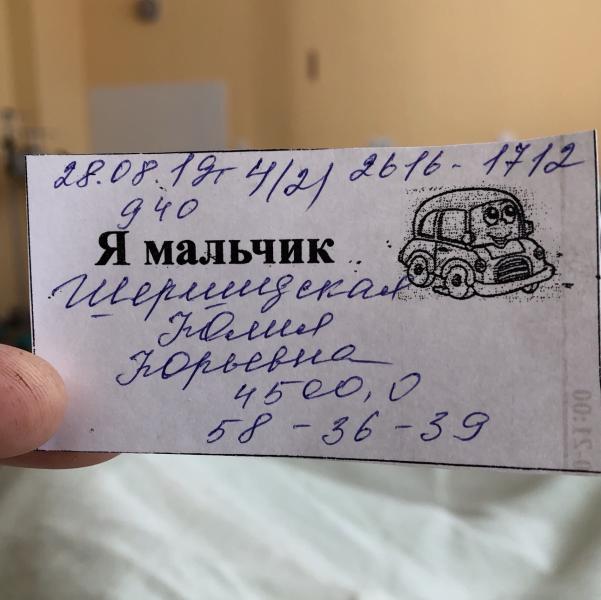 28.08.19г 4(2) 2616-1712
9 40
Я мальчик
Юлия
Юрьевна
4500,0
58-36-39